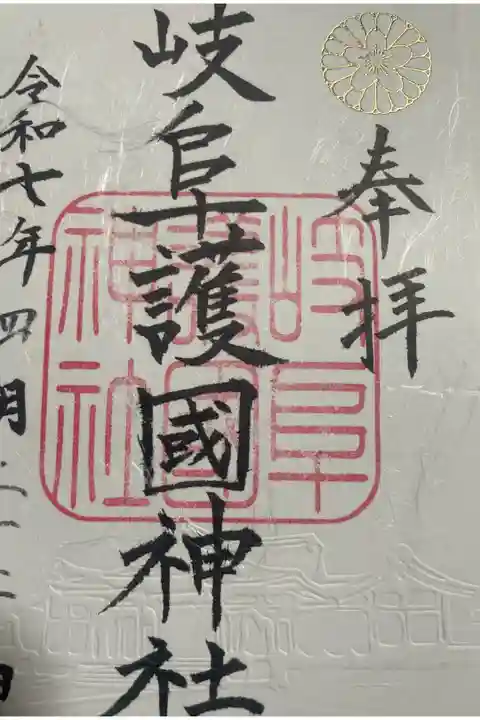 奉拝
岐阜護國神社
岐阜
護國
神社
令和七年四月二十二日